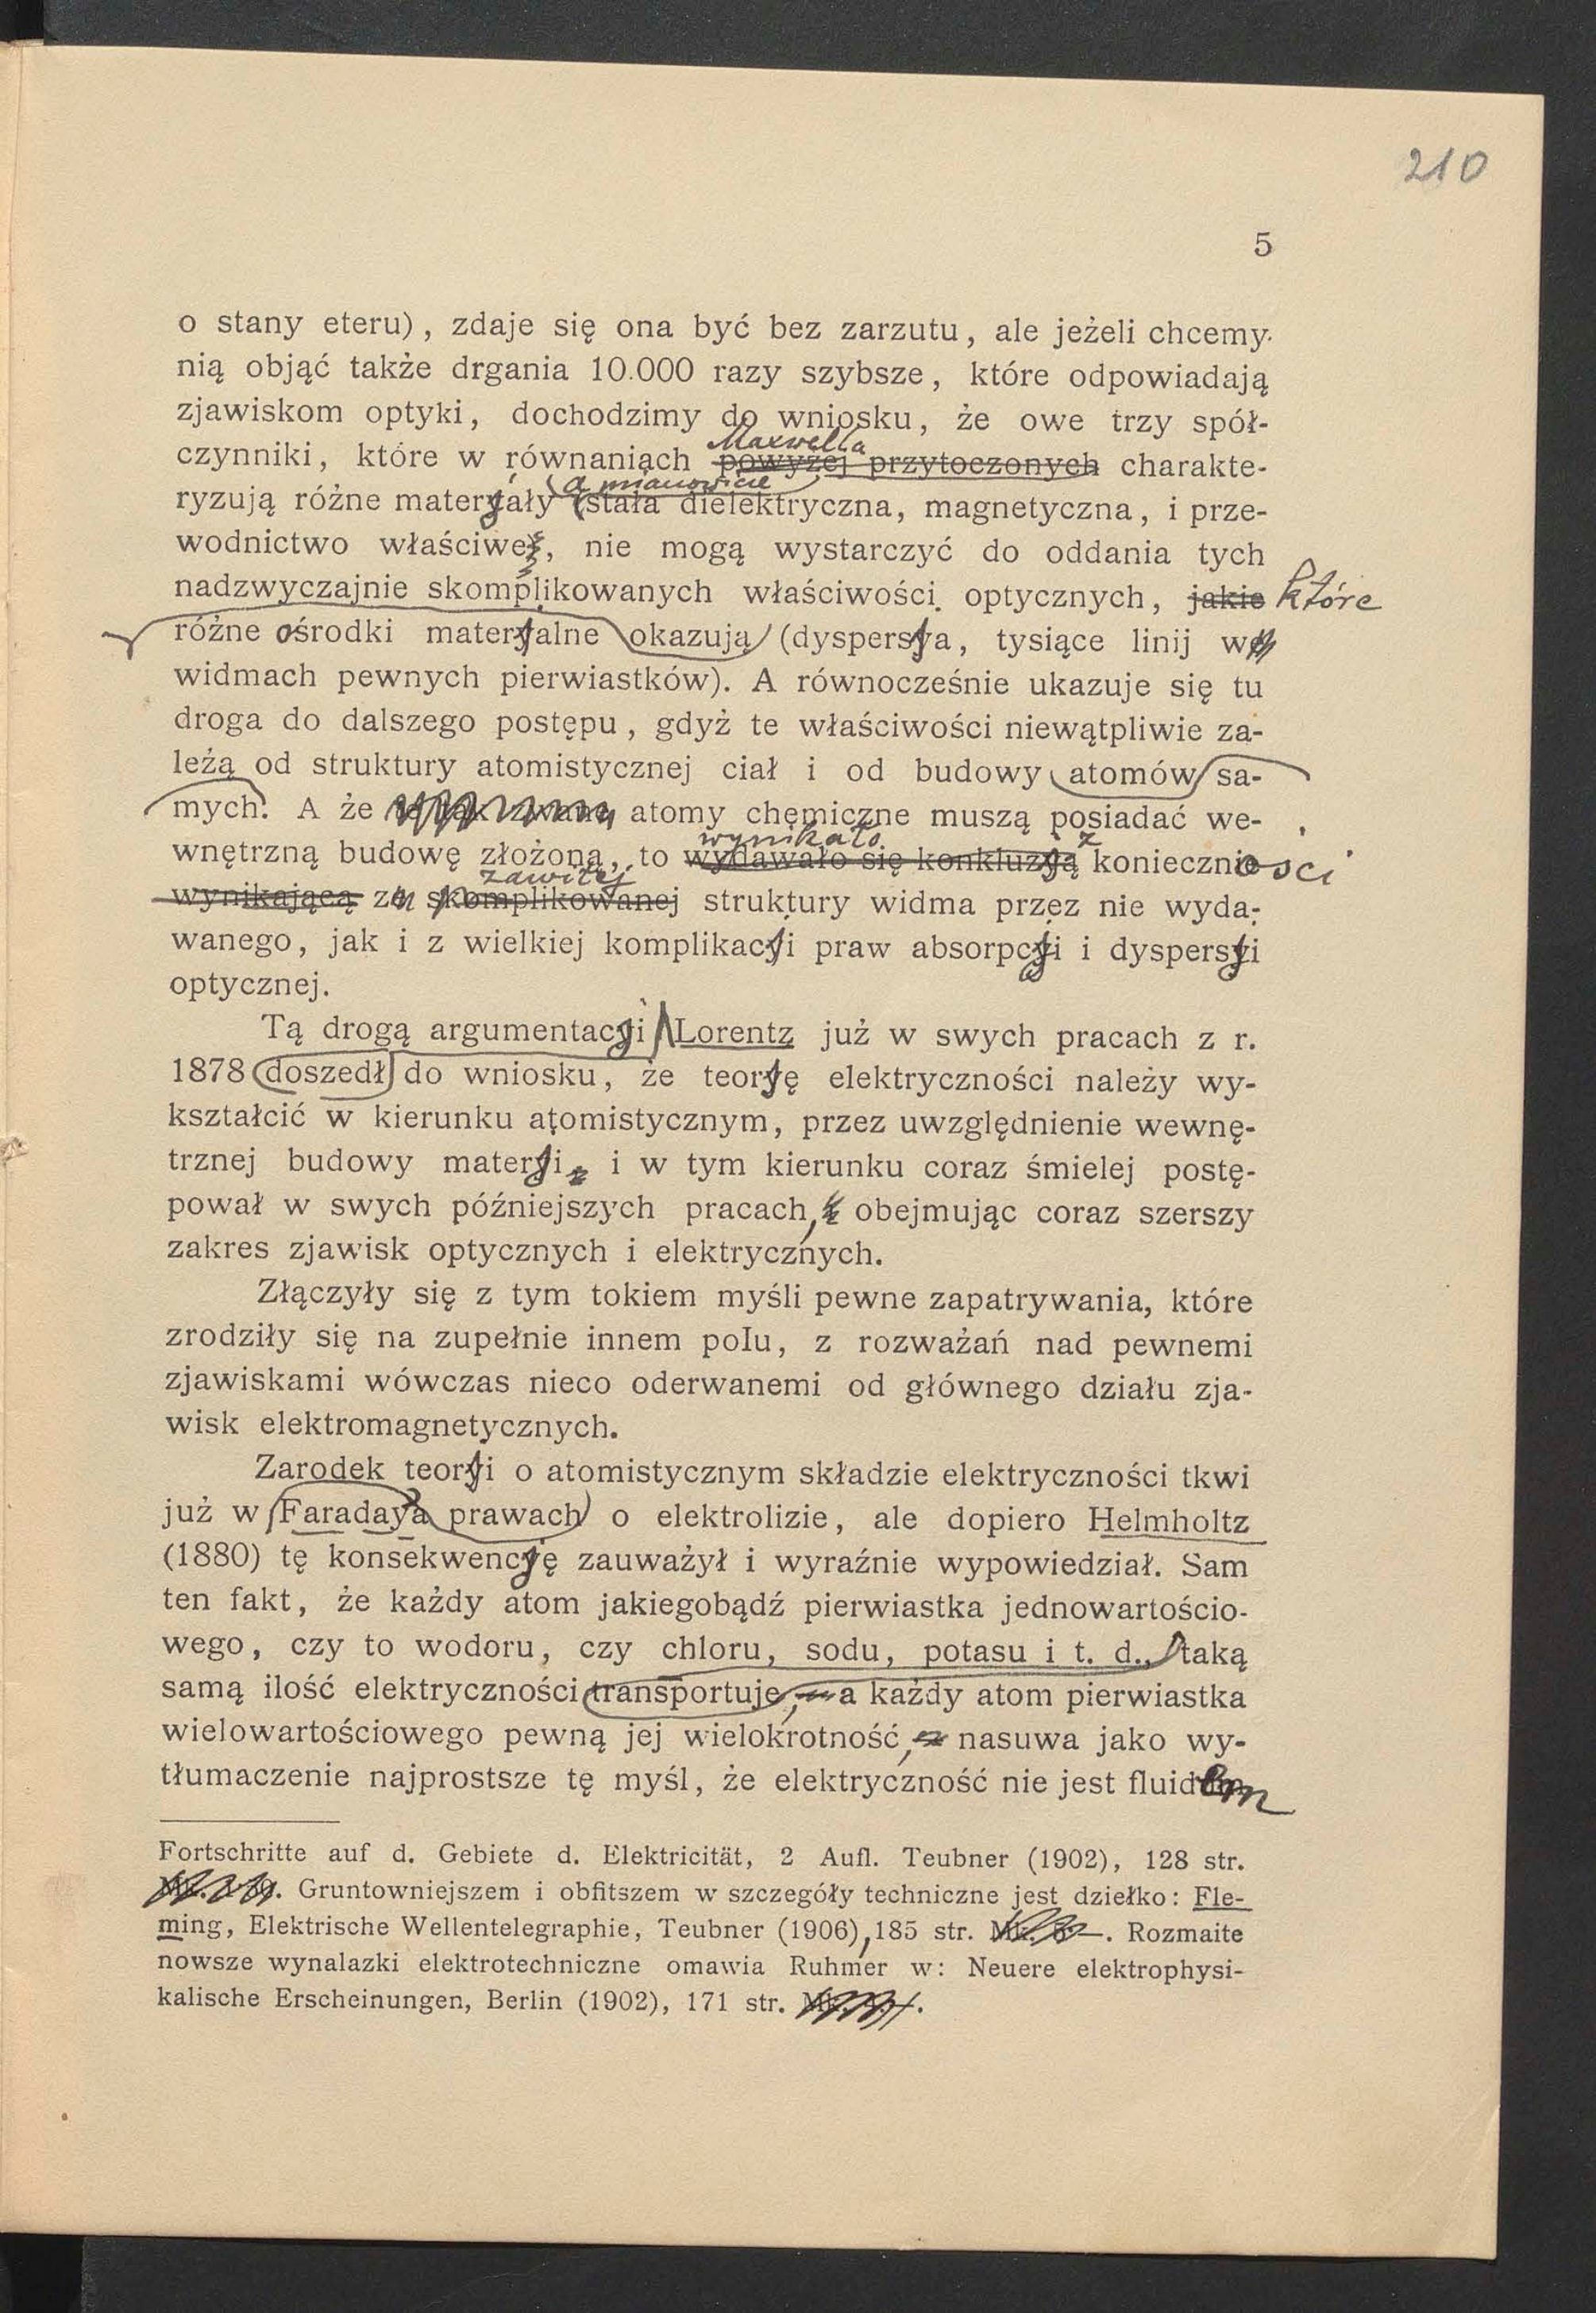 210
5
o stany eteru), zdaje się ona być bez zarzutu, ale jeżeli chcemy
nią objąć także drgania 10.000 razy szybsze, które odpowiadają
zjawiskom optyki, dochodzimy do wniosku, że owe trzy spół-
Maxwella
czynniki, które w równaniach powyżej przytoczonych charakte-
a mianowicie
ryzują różne materjały (stała dielektryczna, magnetyczna, i prze-
wodnictwo właściwe, nie mogą wystarczyć do oddania tych
nadzwyczajnie skomplikowanych właściwości optycznych, jakie które
różne ośrodki materjalne okazują (dyspersja, tysiące linij w
widmach pewnych pierwiastków). A równocześnie ukazuje się tu
droga do dalszego postępu, gdyż te właściwości niewątpliwie za-
leżą od struktury atomistycznej ciał i od budowy atomów sa-
mych. A że atomy chemiczne muszą posiadać we-
wynikało z
wnętrzną budowę złożoną, to wydawało się konkluzją konieczności
zawiłej
wynikającą ze skomplikowanej struktury widma przez nie wyda-
wanego, jak i z wielkiej komplikacji praw absorpcji i dyspersji
optycznej.
Tą drogą argumentacji Lorentz już w swych pracach z r.
1878 doszedł do wniosku, że teorję elektryczności należy wy-
kształcić w kierunku atomistycznym, przez uwzględnienie wewnę-
trznej budowy materji, i w tym kierunku coraz śmielej postę-
pował w swych późniejszych pracach, obejmując coraz szerszy
zakres zjawisk optycznych i elektrycznych.
Złączyły się z tym tokiem myśli pewne zapatrywania, które
zrodziły się na zupełnie innem polu, z rozważań nad pewnemi
zjawiskami wówczas nieco oderwanemi od głównego działu zja-
wisk elektromagnetycznych.
Zarodek teorji o atomistycznym składzie elektryczności tkwi
już w Faradaya prawach o elektrolizie, ale dopiero Helmholtz
(1880) tę konsekwencję zauważył i wyraźnie wypowiedział. Sam
ten fakt, że każdy atom jakiegobądź pierwiastka jednowartościo-
wego, czy to wodoru, czy chloru, sodu, potasu i t. d., taką
samą ilość elektryczności transportuje, a każdy atom pierwiastka
wielowartościowego pewną jej wielokrotność, nasuwa jako wy-
tłumaczenie najprostsze tę myśl, że elektryczność nie jest fluidem
Fortschritte auf d. Gebiete d. Elektricität, 2 Aufl. Teubner (1902), 128 str.
Gruntowniejszem i obfitszem w szczegóły techniczne jest dziełko: Fle-
ming, Elektrische Wellentelegraphie, Teubner (1906), 185 str. Rozmaite
nowsze wynalazki elektrotechniczne omawia Ruhmer w: Neuere elektrophysi-
kalische Erscheinungen, Berlin (1902), 171 str.